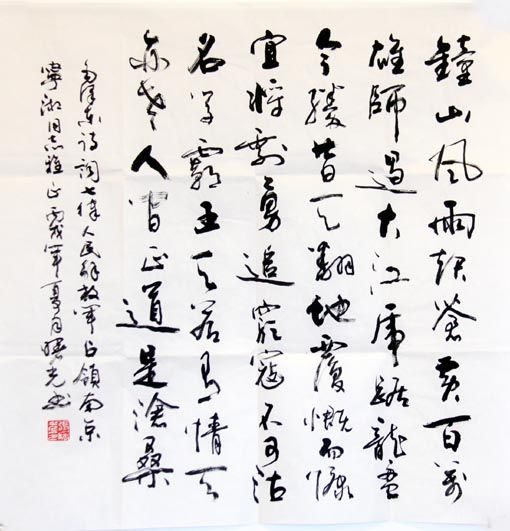 鐘山風雨起蒼黃百萬
雄師過大江虎踞龍盤
今勝昔天翻地覆慨而慷
宜將剩勇追窮寇不可沽
名學霸王天若有情天
亦老人間正道是滄桑
毛澤東詩詞七律人民解放軍占領南京
寧湘同志雅正丙戌年夏月曙光書